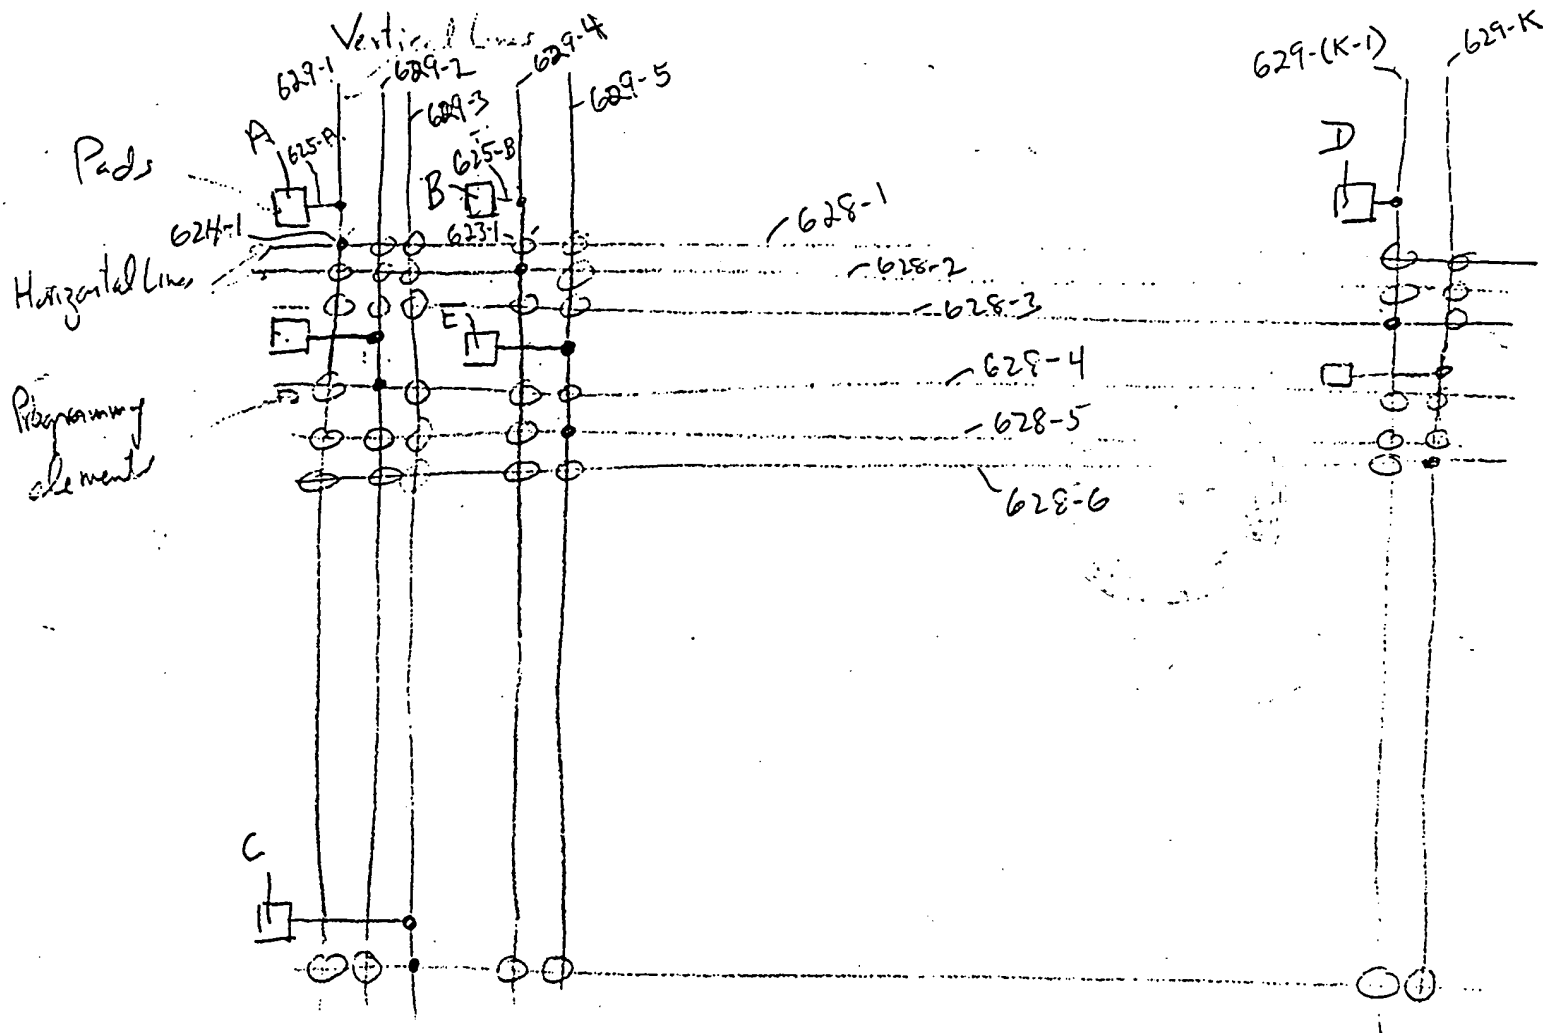 Vertical Lines
629-1
629-2
629-3
629-4
629-5
629-(K-1)
629-K
A
625-A
Pads
B
625-B
D
624-1
623-1
628-1
Horizontal Lines
628-2
628-3
E
628-4
Programming
elements
628-5
628-6
C